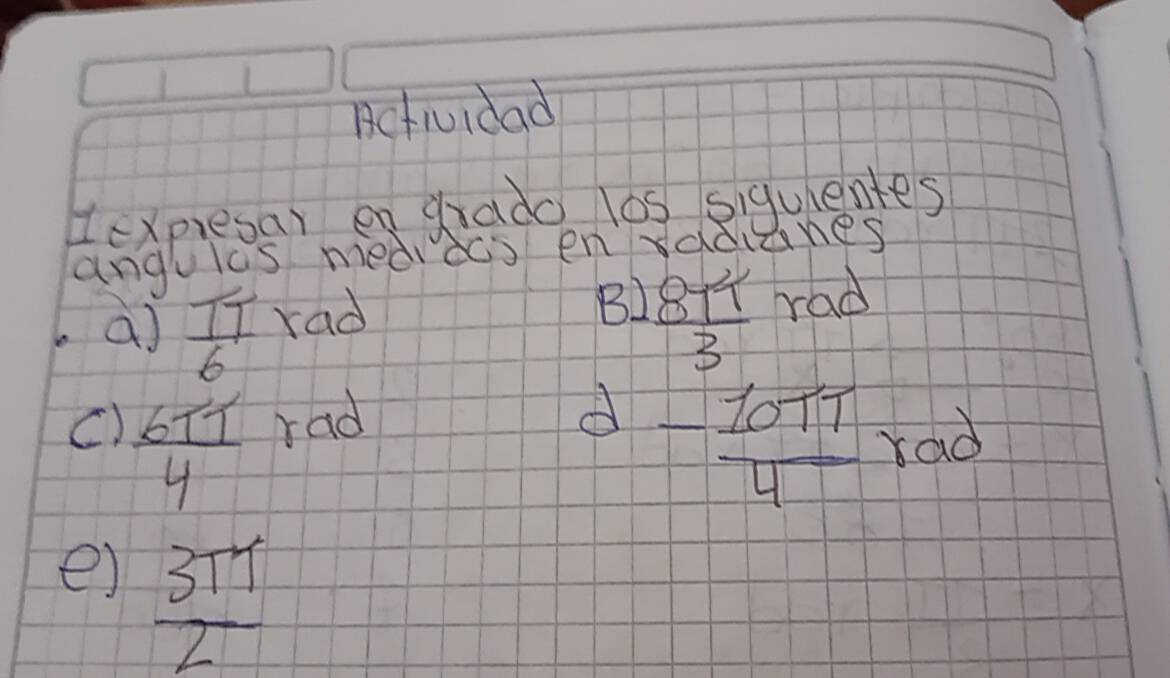 Actividad
I Expresar en grado los siguientes
angulos medidos en radianes
. a) π/6 rad B) 8π/3 rad
c) 6π/4 rad d - 10π/4 rad
e) 3π/2